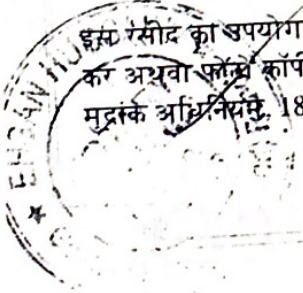 इस रसीद का उपयोग
कर अथवा फोटो कॉपी
मुद्रांक अधिनियम, 18
EHSAN